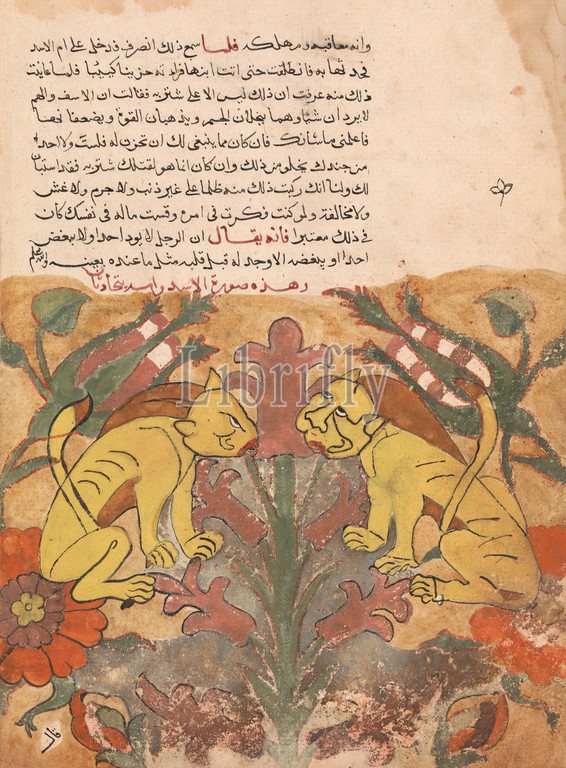 وانه معاقبه ومهلكه فلما سمع ذلك انصرف فدخل على ام الاسد
حتى اتت ابنها حزينا كئيبا فلما عاينت
ذلك منه عرفت ان ذلك ليس الا على شتربه فقالت ان الاسف والهم
لا يردان شيا وهما ينحلان الجسم ويذهبان القوة ويضعفانها
فاعلمني ما شانك فان كان مما ينبغي لك ان تحزن له فلست ولا احد
من جندك يخلو من ذلك وان كان انما هو لقتلك شتربه فقد استبان
لك ولنا انك ركبت ذلك منه ظلما على غير ذنب ولا جرم ولا غش
ولا مخالفة ولو كنت فكرت في امره وقست ماله في نفسك كان
في ذلك معتبرا فانه يقال ان الرجل لا يود احدا ولا يبغض
احدا او يبغضه الا وجد له قبل قلبه مثل ما عنده
وهذه صورة الاسد وامه يتحادثان
Librifly